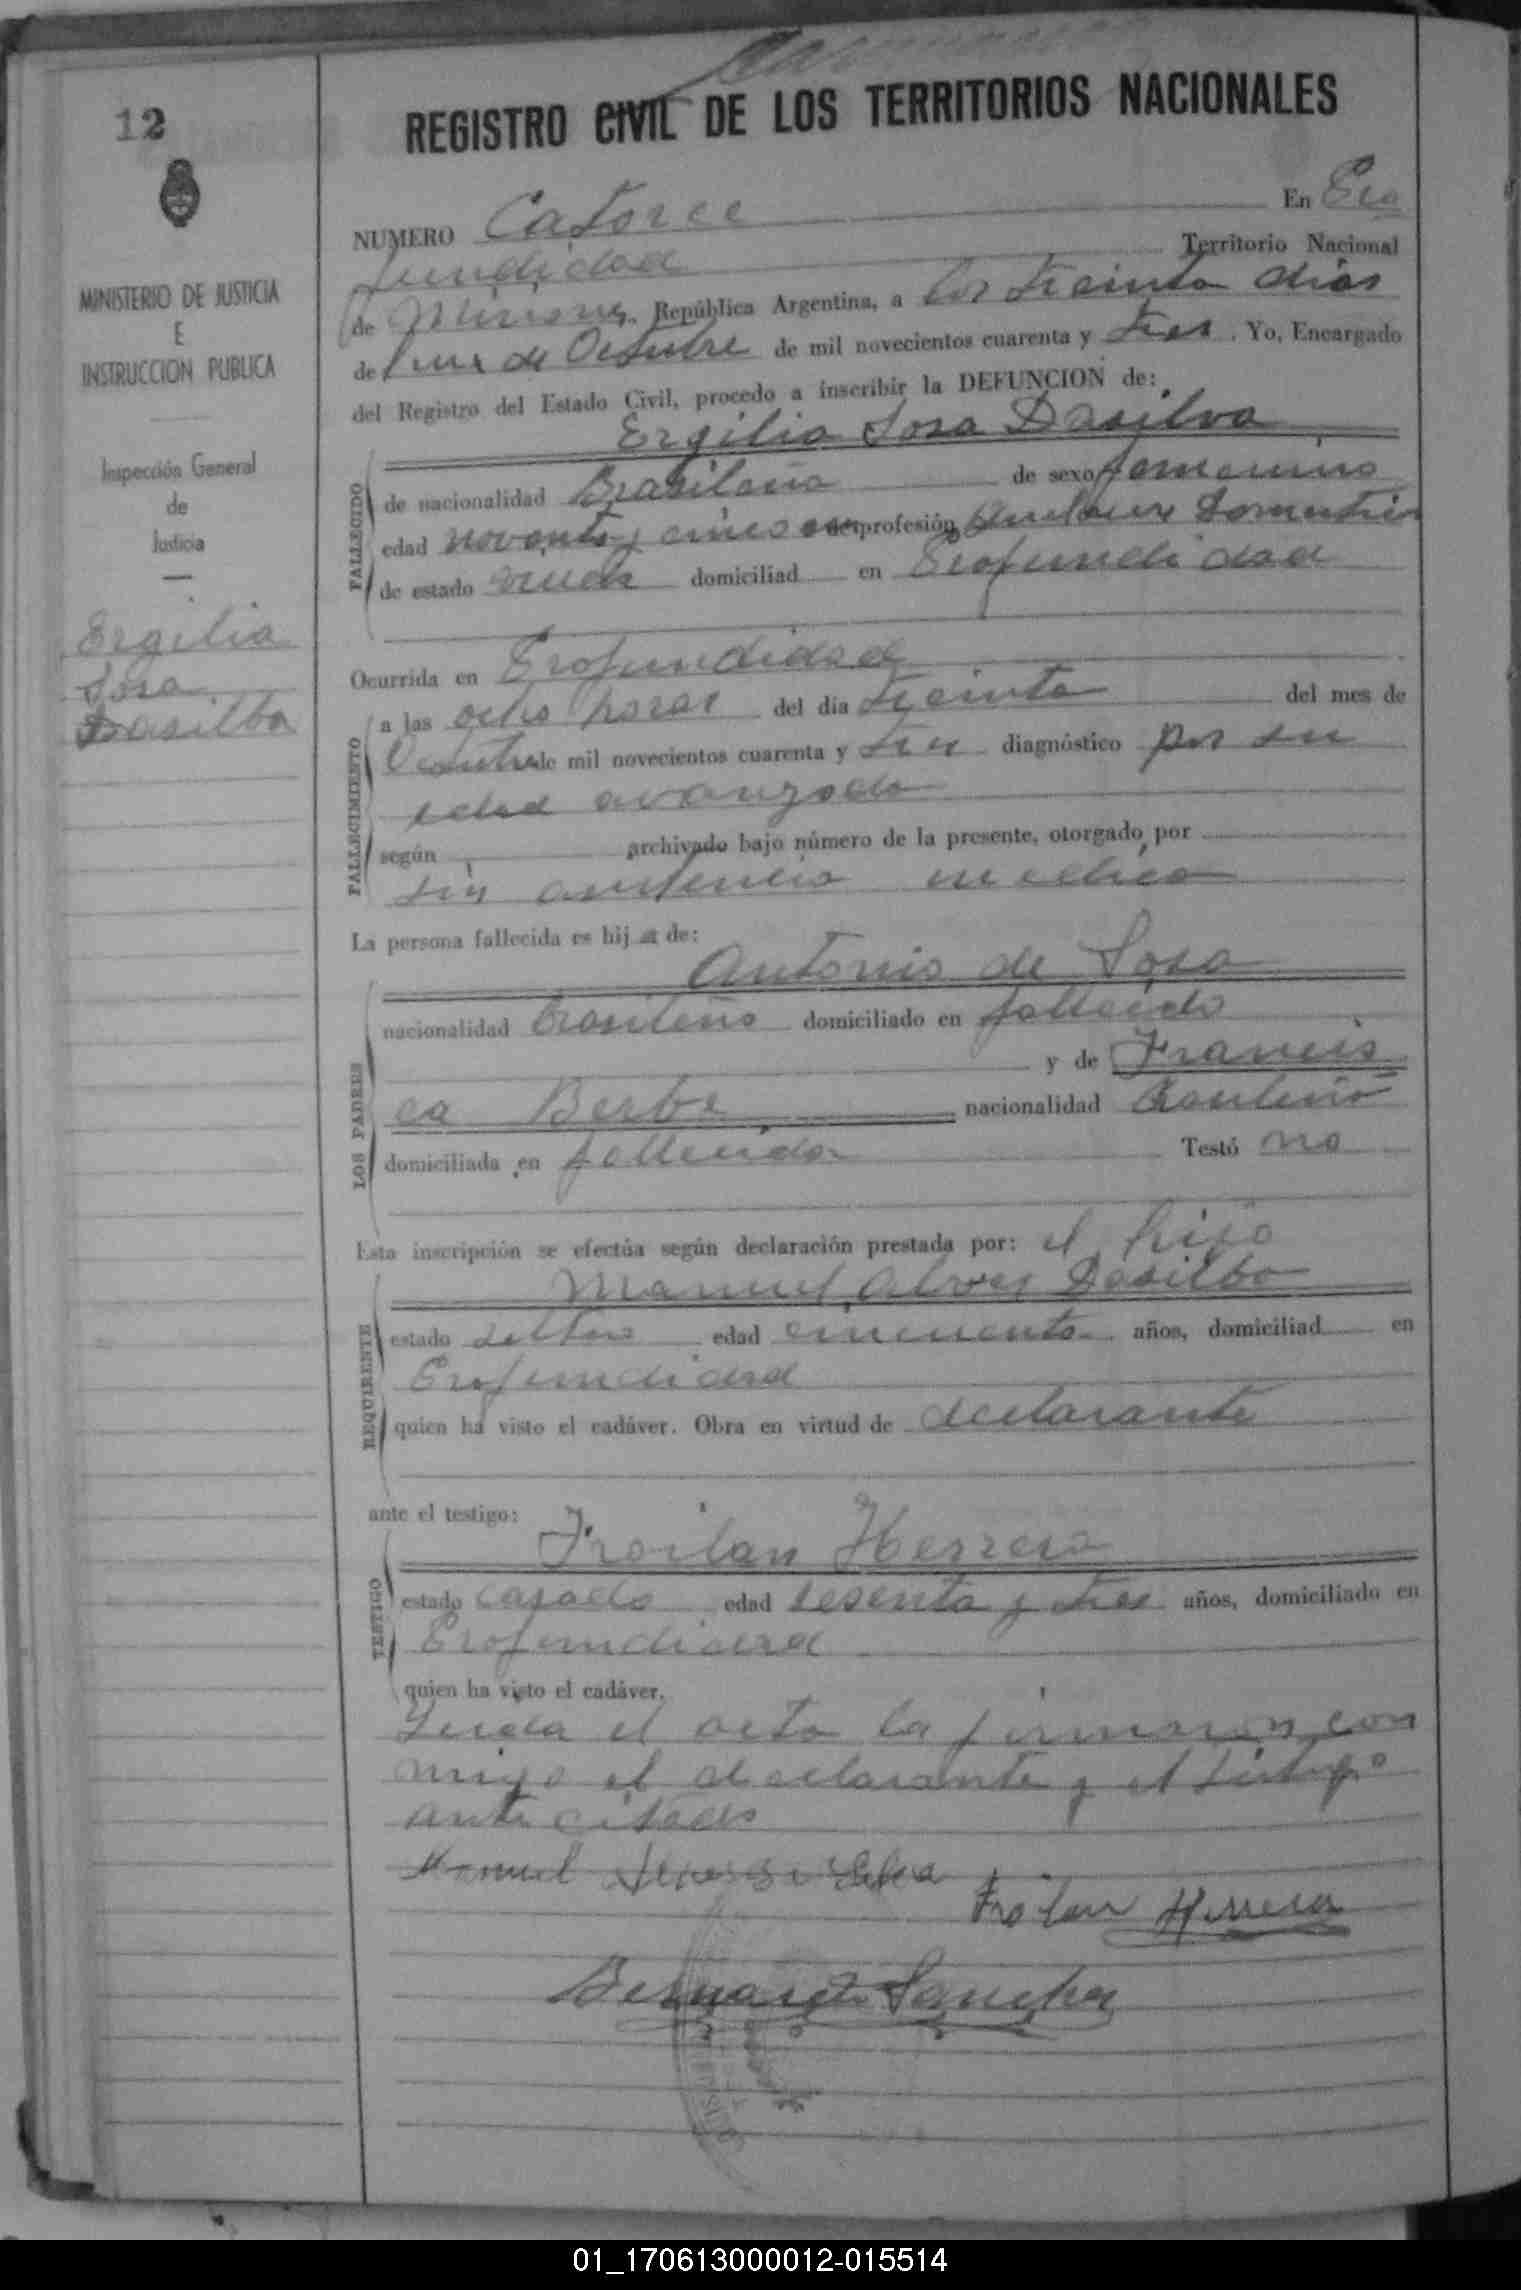 12
REGISTRO CIVIL DE LOS TERRITORIOS NACIONALES
MINISTERIO DE JUSTICIA
E
INSTRUCCION PUBLICA
Inspección General
de
Justicia
Ergilia
Sosa
Dasilba
NUMERO Catorce En Pro
fundidad Territorio Nacional
de Misiones, República Argentina, a los treinta dias
de mes de Octubre de mil novecientos cuarenta y tres. Yo, Encargado
del Registro del Estado Civil, procedo a inscribir la DEFUNCION de:
Ergilia Sosa Dasilva
FALLECIDO
de nacionalidad Brasileña de sexo femenino
edad noventa y cinco profesión
de estado viuda domiciliad en Profundidad
Ocurrida en Profundidad
FALLECIMIENTO
a las ocho horas del día treinta del mes de
Octubre de mil novecientos cuarenta y tres diagnóstico por su
edad avanzada
según archivado bajo número de la presente, otorgado por
sin asistencia medica
La persona fallecida es hij a de:
Antonio de Sosa
LOS PADRES
nacionalidad Brasileño domiciliado en fallecido
y de Francis
ca Berbe nacionalidad Brasileño
domiciliada en fallecida Testó no
Esta inscripción se efectúa según declaración prestada por: el hijo
Manuel Alves Dasilba
REQUIRENTE
estado soltero edad cincuenta años, domiciliad en
Profundidad
quien ha visto el cadáver. Obra en virtud de declarante
ante el testigo:
Froilan Herrera
TESTIGO
estado casado edad sesenta y tres años, domiciliado en
Profundidad
quien ha visto el cadáver.
Leida el acta la firmaron con
migo el declarante y el testigo
ante citado
Manuel
Froilan Herrera
Bernardo Sanchez
01_170613000012-015514